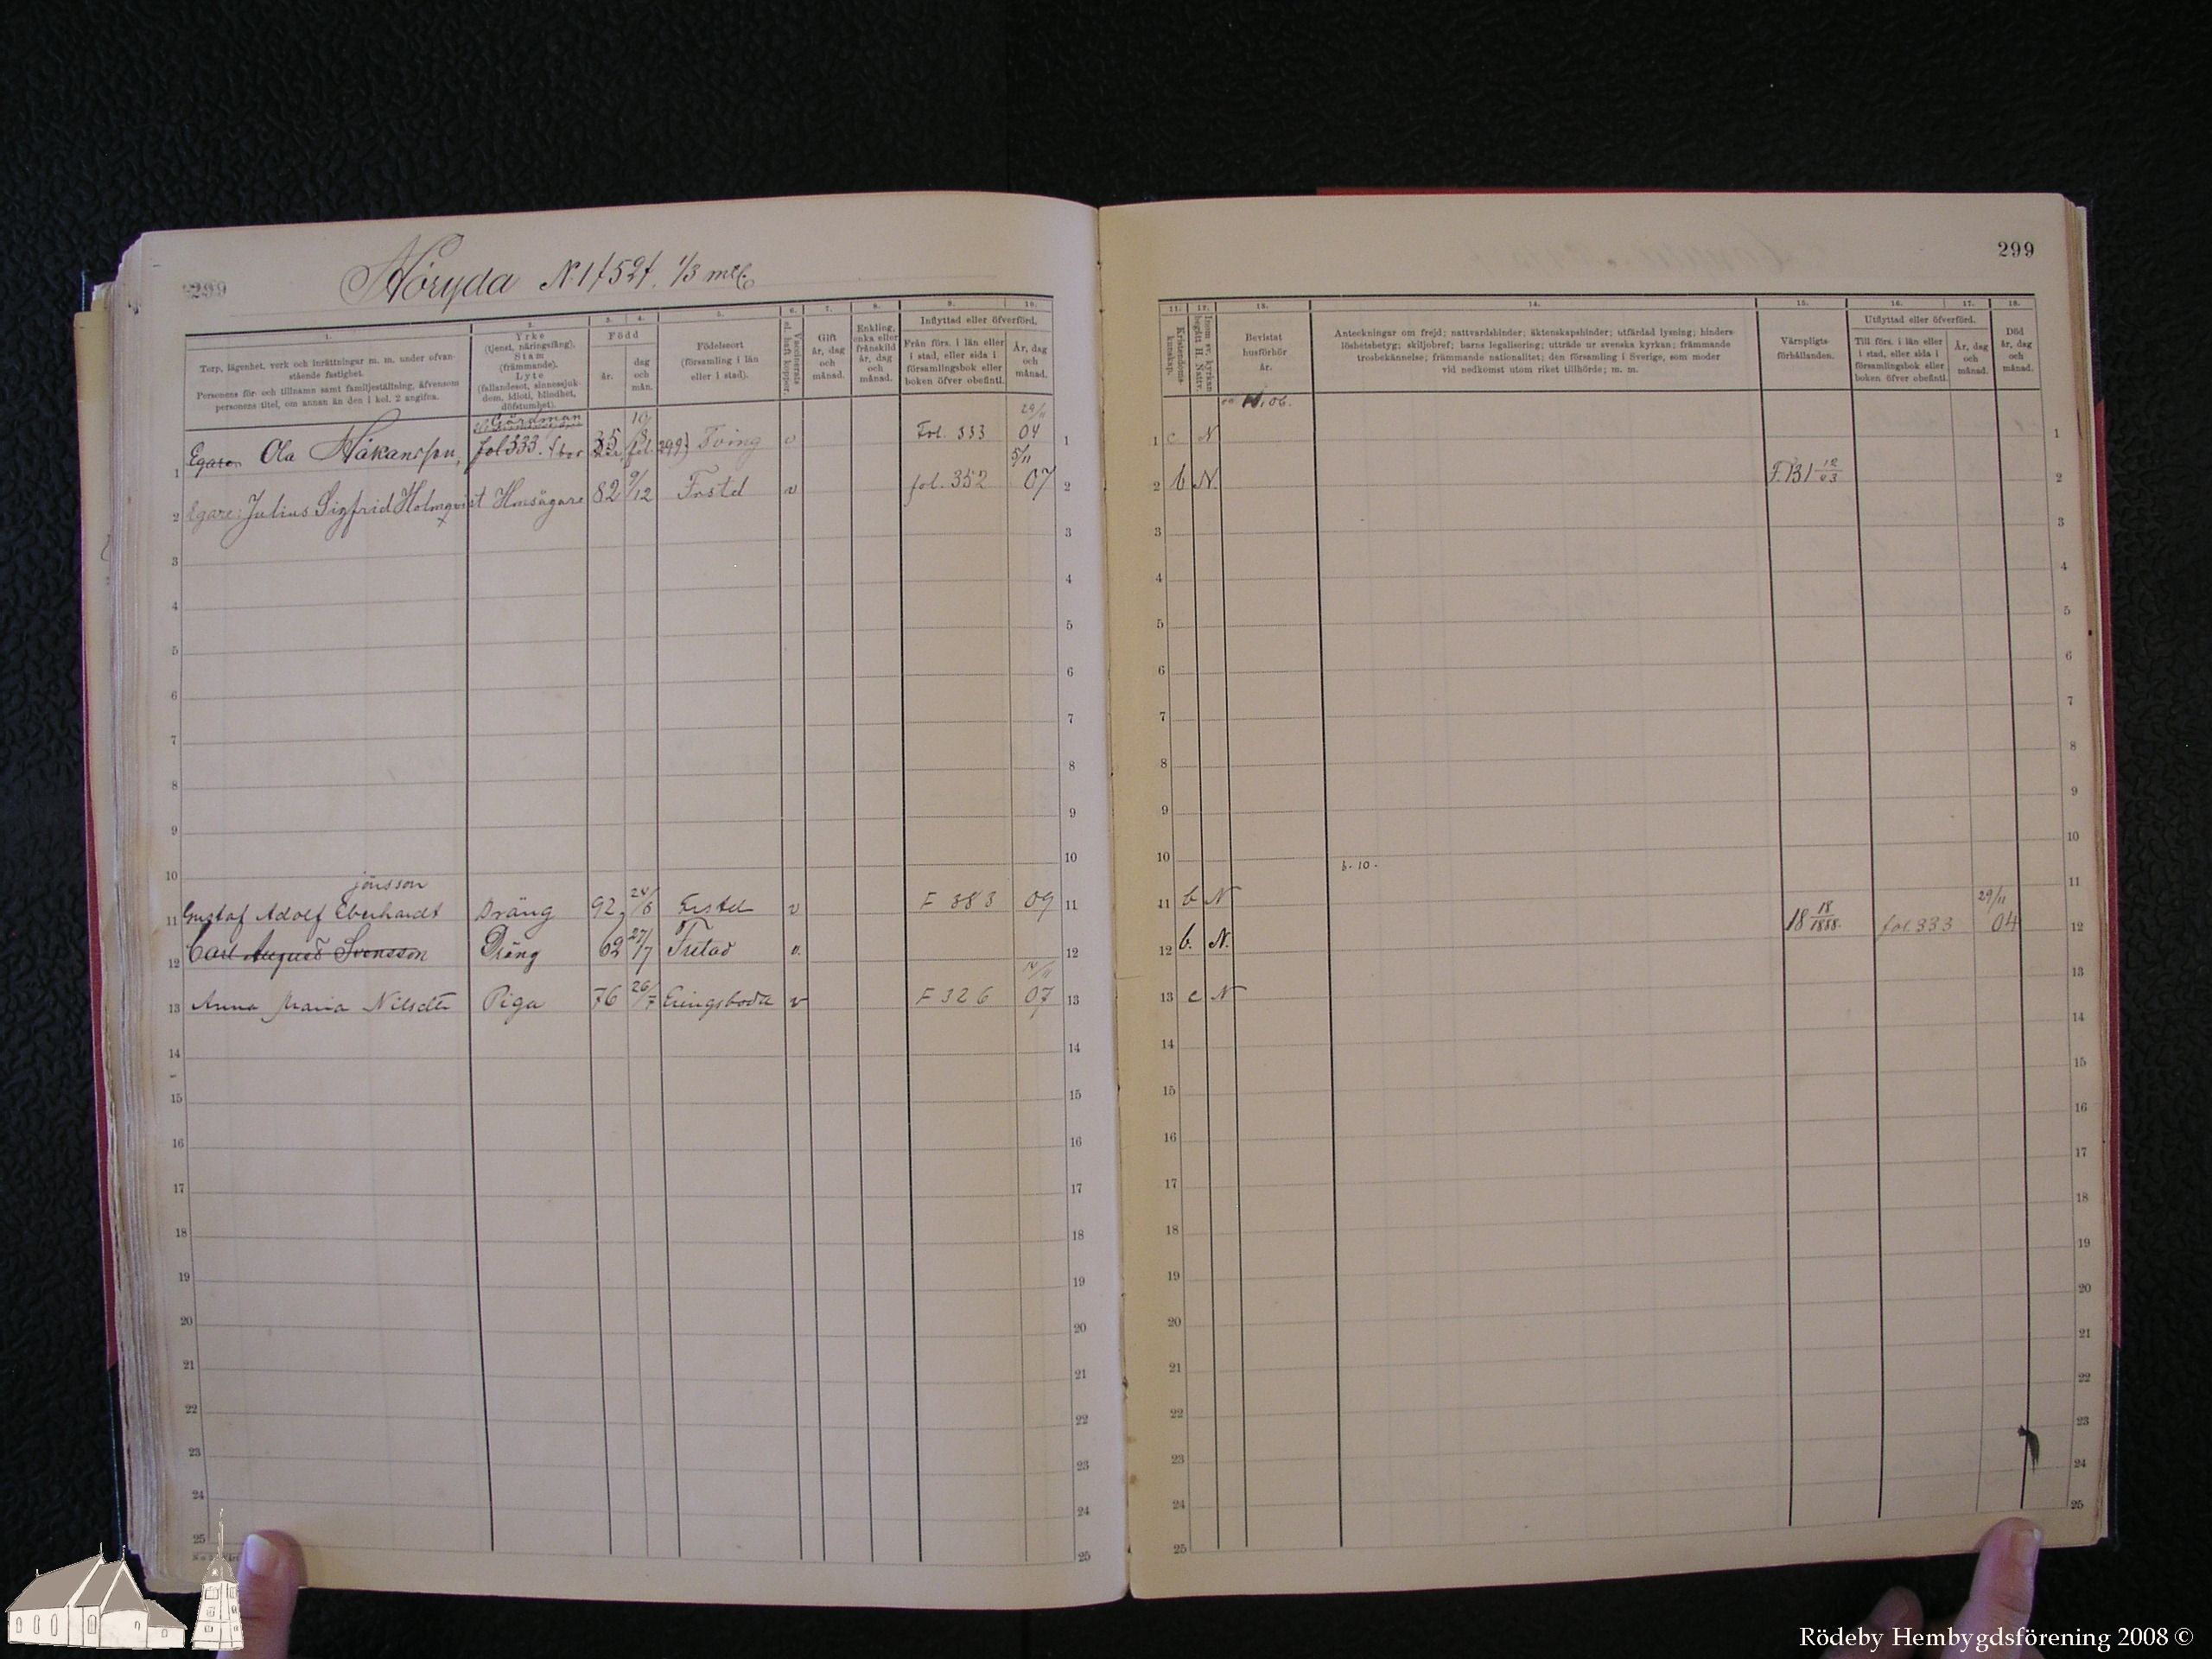 299
Höryda N:1 1/3 mtl
1. 2. 3. 4. 5. 6. 7. 8. 9. 10.
Torp, lägenhet, verk och inrättningar m. m. under ofvan-
stående fastighet.
Personens för- och tillnamn samt familjeställning, äfvensom
personens titel, om annan än den i kol. 2 angifna.
Yrke
(tjenst, näringsfång),
Stam
(främmande),
Lyte
(fallandesot, sinnessjuk-
dom, idioti, blindhet,
döfstumhet).
Född
år.
dag
och
mån.
Födelseort
(församling i län
eller i stad).
Vaccinerats
el. haft koppor.
Gift
år, dag
och
månad.
Enkling,
enka eller
frånskild
år, dag
och
månad.
Inflyttad eller öfverförd.
Från förs. i län eller
i stad, eller sida i
församlingsbok eller
boken öfver obefintl.
År, dag
och
månad.
1 Egare Ola Håkansson, Gårdman fol 333. 35 10/8 Tving v Fol. 333 29/11 04 1
2 Egare: Julius Sigfrid Holmqvist Husägare 82 9/12 Frstd v fol. 352 5/11 07 2
3 3
4 4
5 5
6 6
7 7
8 8
9 9
10 10
jönsson
11 Gustaf Adolf Eberhardt Dräng 92 24/6 Frstd v F 383 09 11
12 Carl August Svensson Dräng 62 27/7 Fristad v. 12
13 Anna Maria Nilsdtr Piga 76 26/7 Eringsboda v F 326 07 13
14 14
15 15
16 16
17 17
18 18
19 19
20 20
21 21
22 22
23 23
24 24
25 25
299
11. 12. 13. 14. 15. 16. 17. 18.
Kristendoms-
kunskap.
Inom sv. kyrkan
begått H. Nattv.
Bevistat
husförhör
år.
Anteckningar om frejd; nattvardshinder; äktenskapshinder; utfärdad lysning; hinders-
löshetsbetyg; skiljobref; barns legalisering; utträde ur svenska kyrkan; främmande
trosbekännelse; främmande nationalitet; den församling i Sverige, som moder
vid nedkomst utom riket tillhörde; m. m.
Värnpligts-
förhållanden.
Utflyttad eller öfverförd.
Till förs. i län eller
i stad, eller sida i
församlingsbok eller
boken öfver obefintl.
År, dag
och
månad.
Död
år, dag
och
månad.
06.
1 c N 1
2 b N. F. 131 12/03 2
3 3
4 4
5 5
6 6
7 7
8 8
9 9
10 b. 10. 10
11 b N 11
12 b. N. 18 18/1888. fol. 333 29/11 04 12
13 c N 13
14 14
15 15
16 16
17 17
18 18
19 19
20 20
21 21
22 22
23 23
24 24
25 25
Rödeby Hembygdsförening 2008 ©